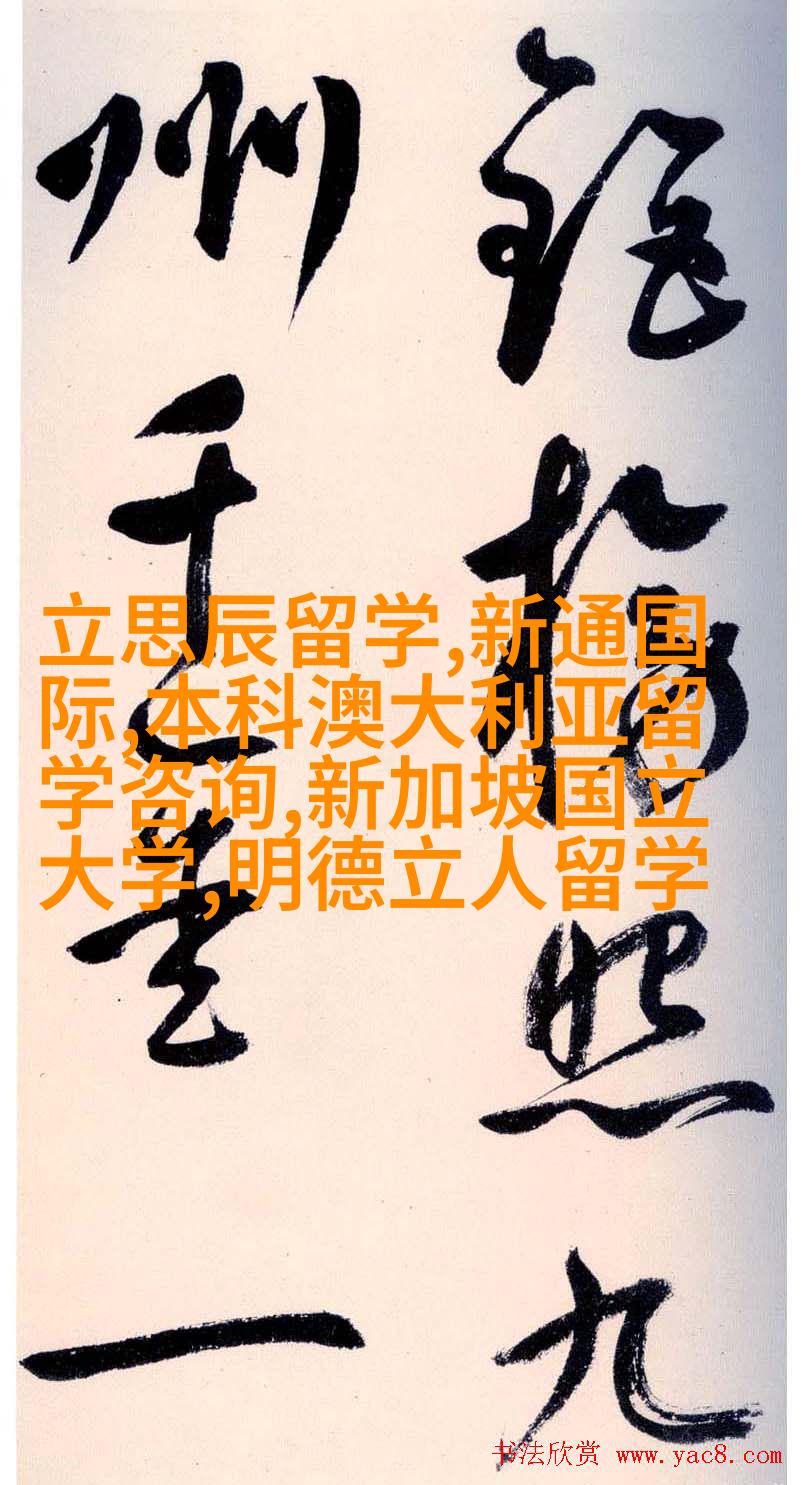 照九
州千一
立思辰留学,新通国
际,本科澳大利亚留
学咨询,新加坡国立
大学,明德立人留学
书法欣赏 www.yac8.com